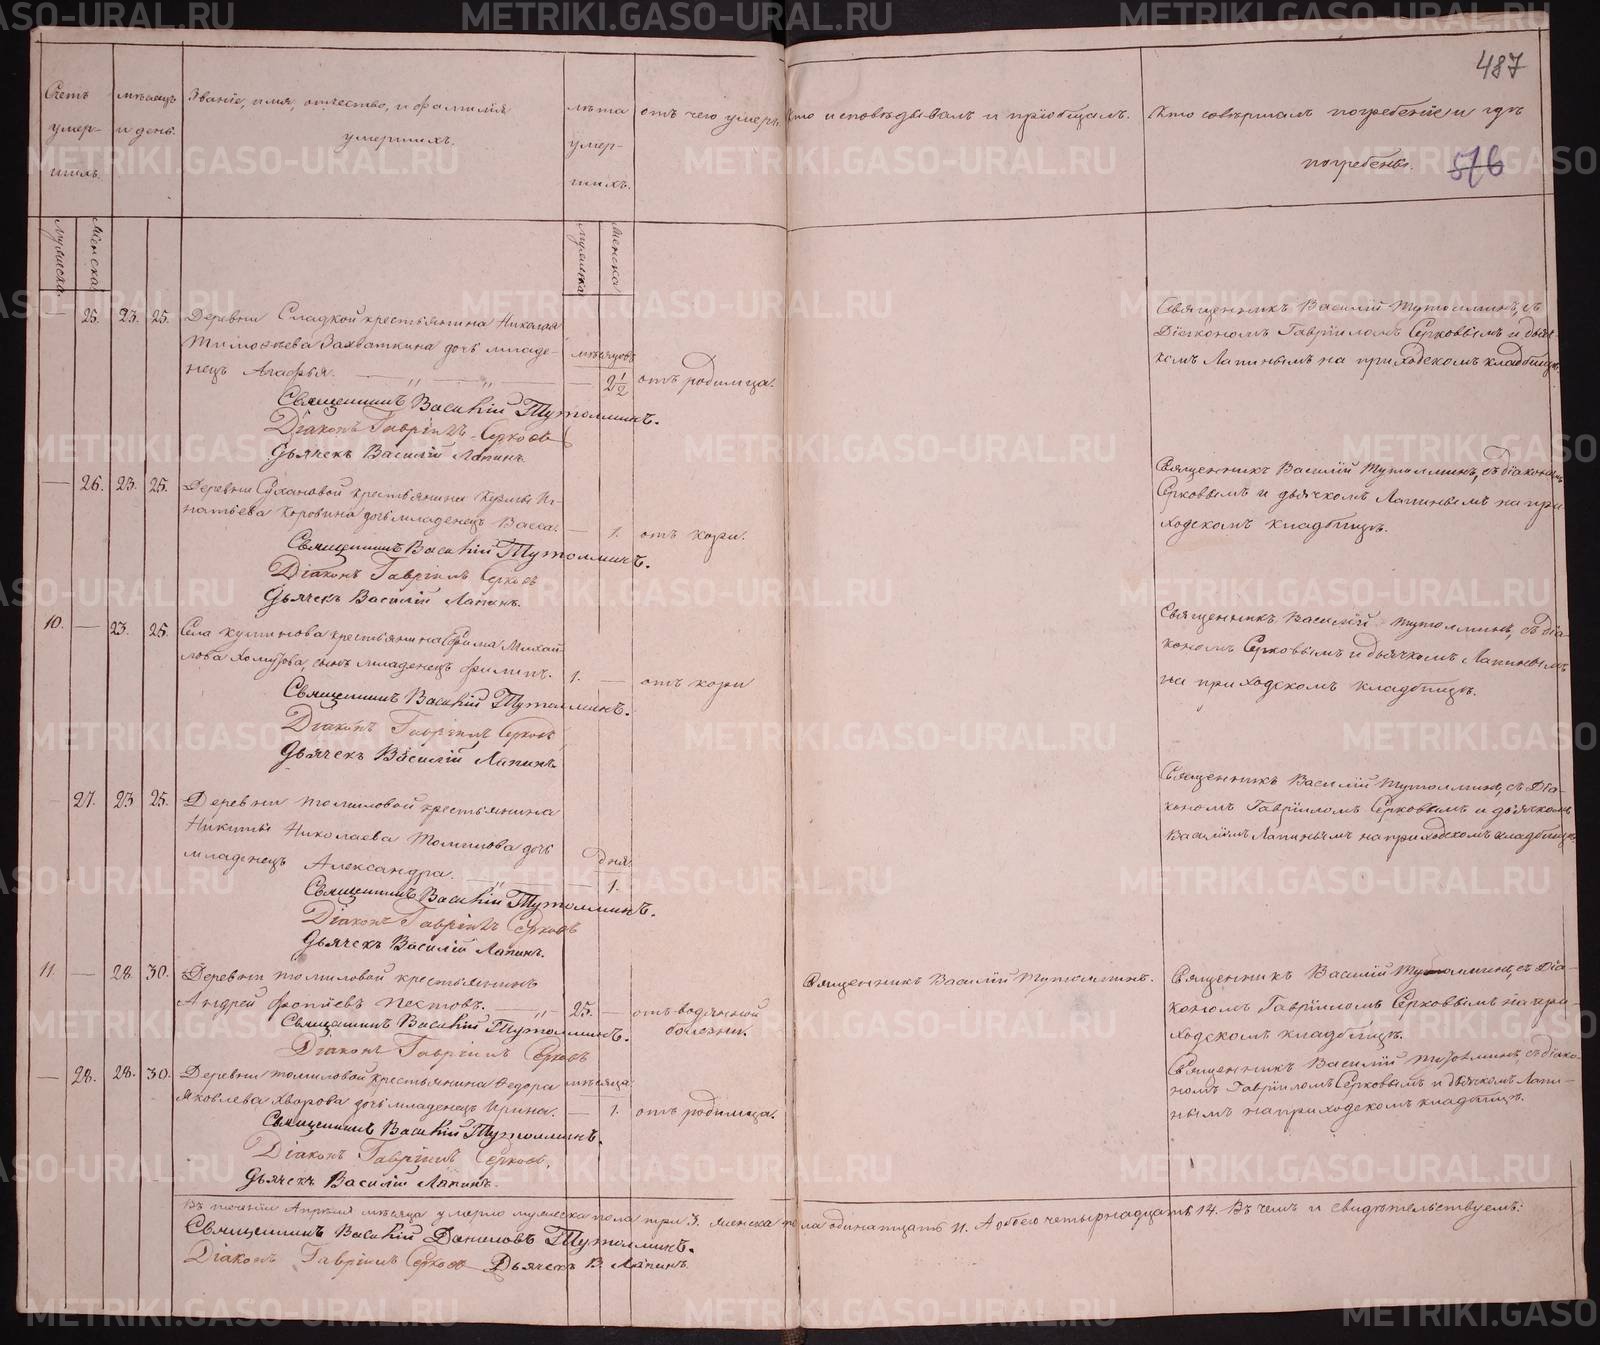 487
Счетъ умер- шихъ.
мѣсяцъ и день.
Званіе, имя, отчество, и фамилія умершихъ.
лѣта умер- шихъ.
отъ чего умеръ.
Кто исповѣдывалъ и пріобщалъ.
Кто совершалъ погребеніе и гдѣ погребенъ.
516
Мужска. Женска. Мужска Женска
— 25. 23. 25. Деревни Сладкой крестьянина Николая
Тимофѣева Захваткина дочь младе- мѣсяцовъ
нецъ Агафья. — 2 1/2 отъ родимца.
Священникъ Василій Тутолминъ, съ
Діакономъ Гавріиломъ Серковымъ и дьяч-
комъ Лапинымъ на приходскомъ кладбищѣ.
Священникъ Василій Тутолминъ.
Діаконъ Гавріилъ Серковъ
Дьячекъ Василій Лапинъ.
— 26. 23. 25. Деревни Сухановой крестьянина Кузмы Иг-
натьева Коровина дочь младенецъ Васса. — 1. отъ кори.
Священникъ Василій Тутолминъ, съ діакономъ
Серковымъ и дьячкомъ Лапинымъ на при-
ходскомъ кладбищѣ.
Священникъ Василій Тутолминъ.
Діаконъ Гавріилъ Серковъ
Дьячекъ Василій Лапинъ.
10. — 23. 25. Села крестьянина Михай-
лова сынъ младенецъ Филипъ. 1. — отъ кори
Священникъ Василій Тутолминъ, съ діа-
кономъ Серковымъ и дьячкомъ Лапинымъ
на приходскомъ кладбищѣ.
Священникъ Василій Тутолминъ.
Діаконъ Гавріилъ Серковъ
Дьячекъ Василій Лапинъ.
— 27. 23 25. Деревни Томиловой крестьянина
Никиты Николаева Томилова дочь
младенецъ Александра. дня. — 1.
Священникъ Василій Тутолминъ, съ Діа-
кономъ Гавріиломъ Серковымъ и дьячкомъ
Василіемъ Лапинымъ на приходскомъ кладбищѣ
Священникъ Василій Тутолминъ.
Діаконъ Гавріилъ Серковъ
Дьячекъ Василій Лапинъ.
11. — 28. 30. Деревни Томиловой крестьянинъ
Андрей Пестовъ. — 25. — отъ водянной болезни.
Священникъ Василій Тутолминъ.
Священникъ Василій Тутолминъ, съ Діа-
кономъ Гавріиломъ Серковымъ на при-
ходскомъ кладбищѣ.
Священникъ Василій Тутолминъ.
Діаконъ Гавріилъ Серковъ
— 28. 28. 30. Деревни Томиловой крестьянина Федора мѣсяца
Яковлева Хворова дочь младенецъ Ирина. — 1. отъ родимца.
Священникъ Василій Тутолминъ, съ діако-
номъ Гавріиломъ Серковымъ и дьячкомъ Лапи-
нымъ на приходскомъ кладбищѣ.
Священникъ Василій Тутолминъ.
Діаконъ Гавріилъ Серковъ.
Дьячекъ Василій Лапинъ.
Въ теченіи Апрѣля мѣсяца умерло мужеска пола три 3. женска пола одинатцать 11. А обоего четырнадцать 14. Въ чемъ и свидѣтельствуемъ:
Священникъ Василій Даниловъ Тутолминъ.
Діаконъ Гавріилъ Серковъ Дьячекъ В. Лапинъ
METRIKI.GASO-URAL.RU